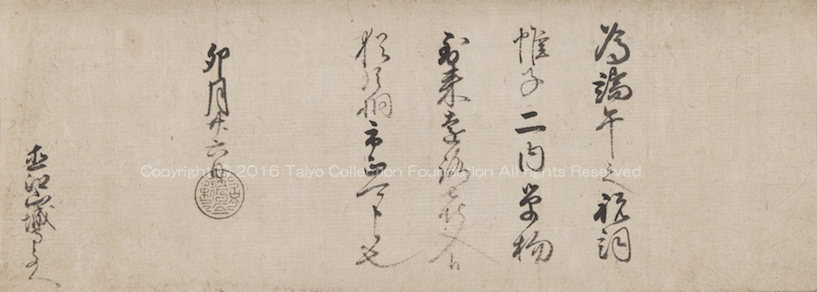 為端午之祝詞
帷子二内単物
到来遠路
猶片桐市正可申也
卯月廿六日
直江山城守とのへ
Copyright © 2016 Taiyo Collection Foundation All rights Reserved.